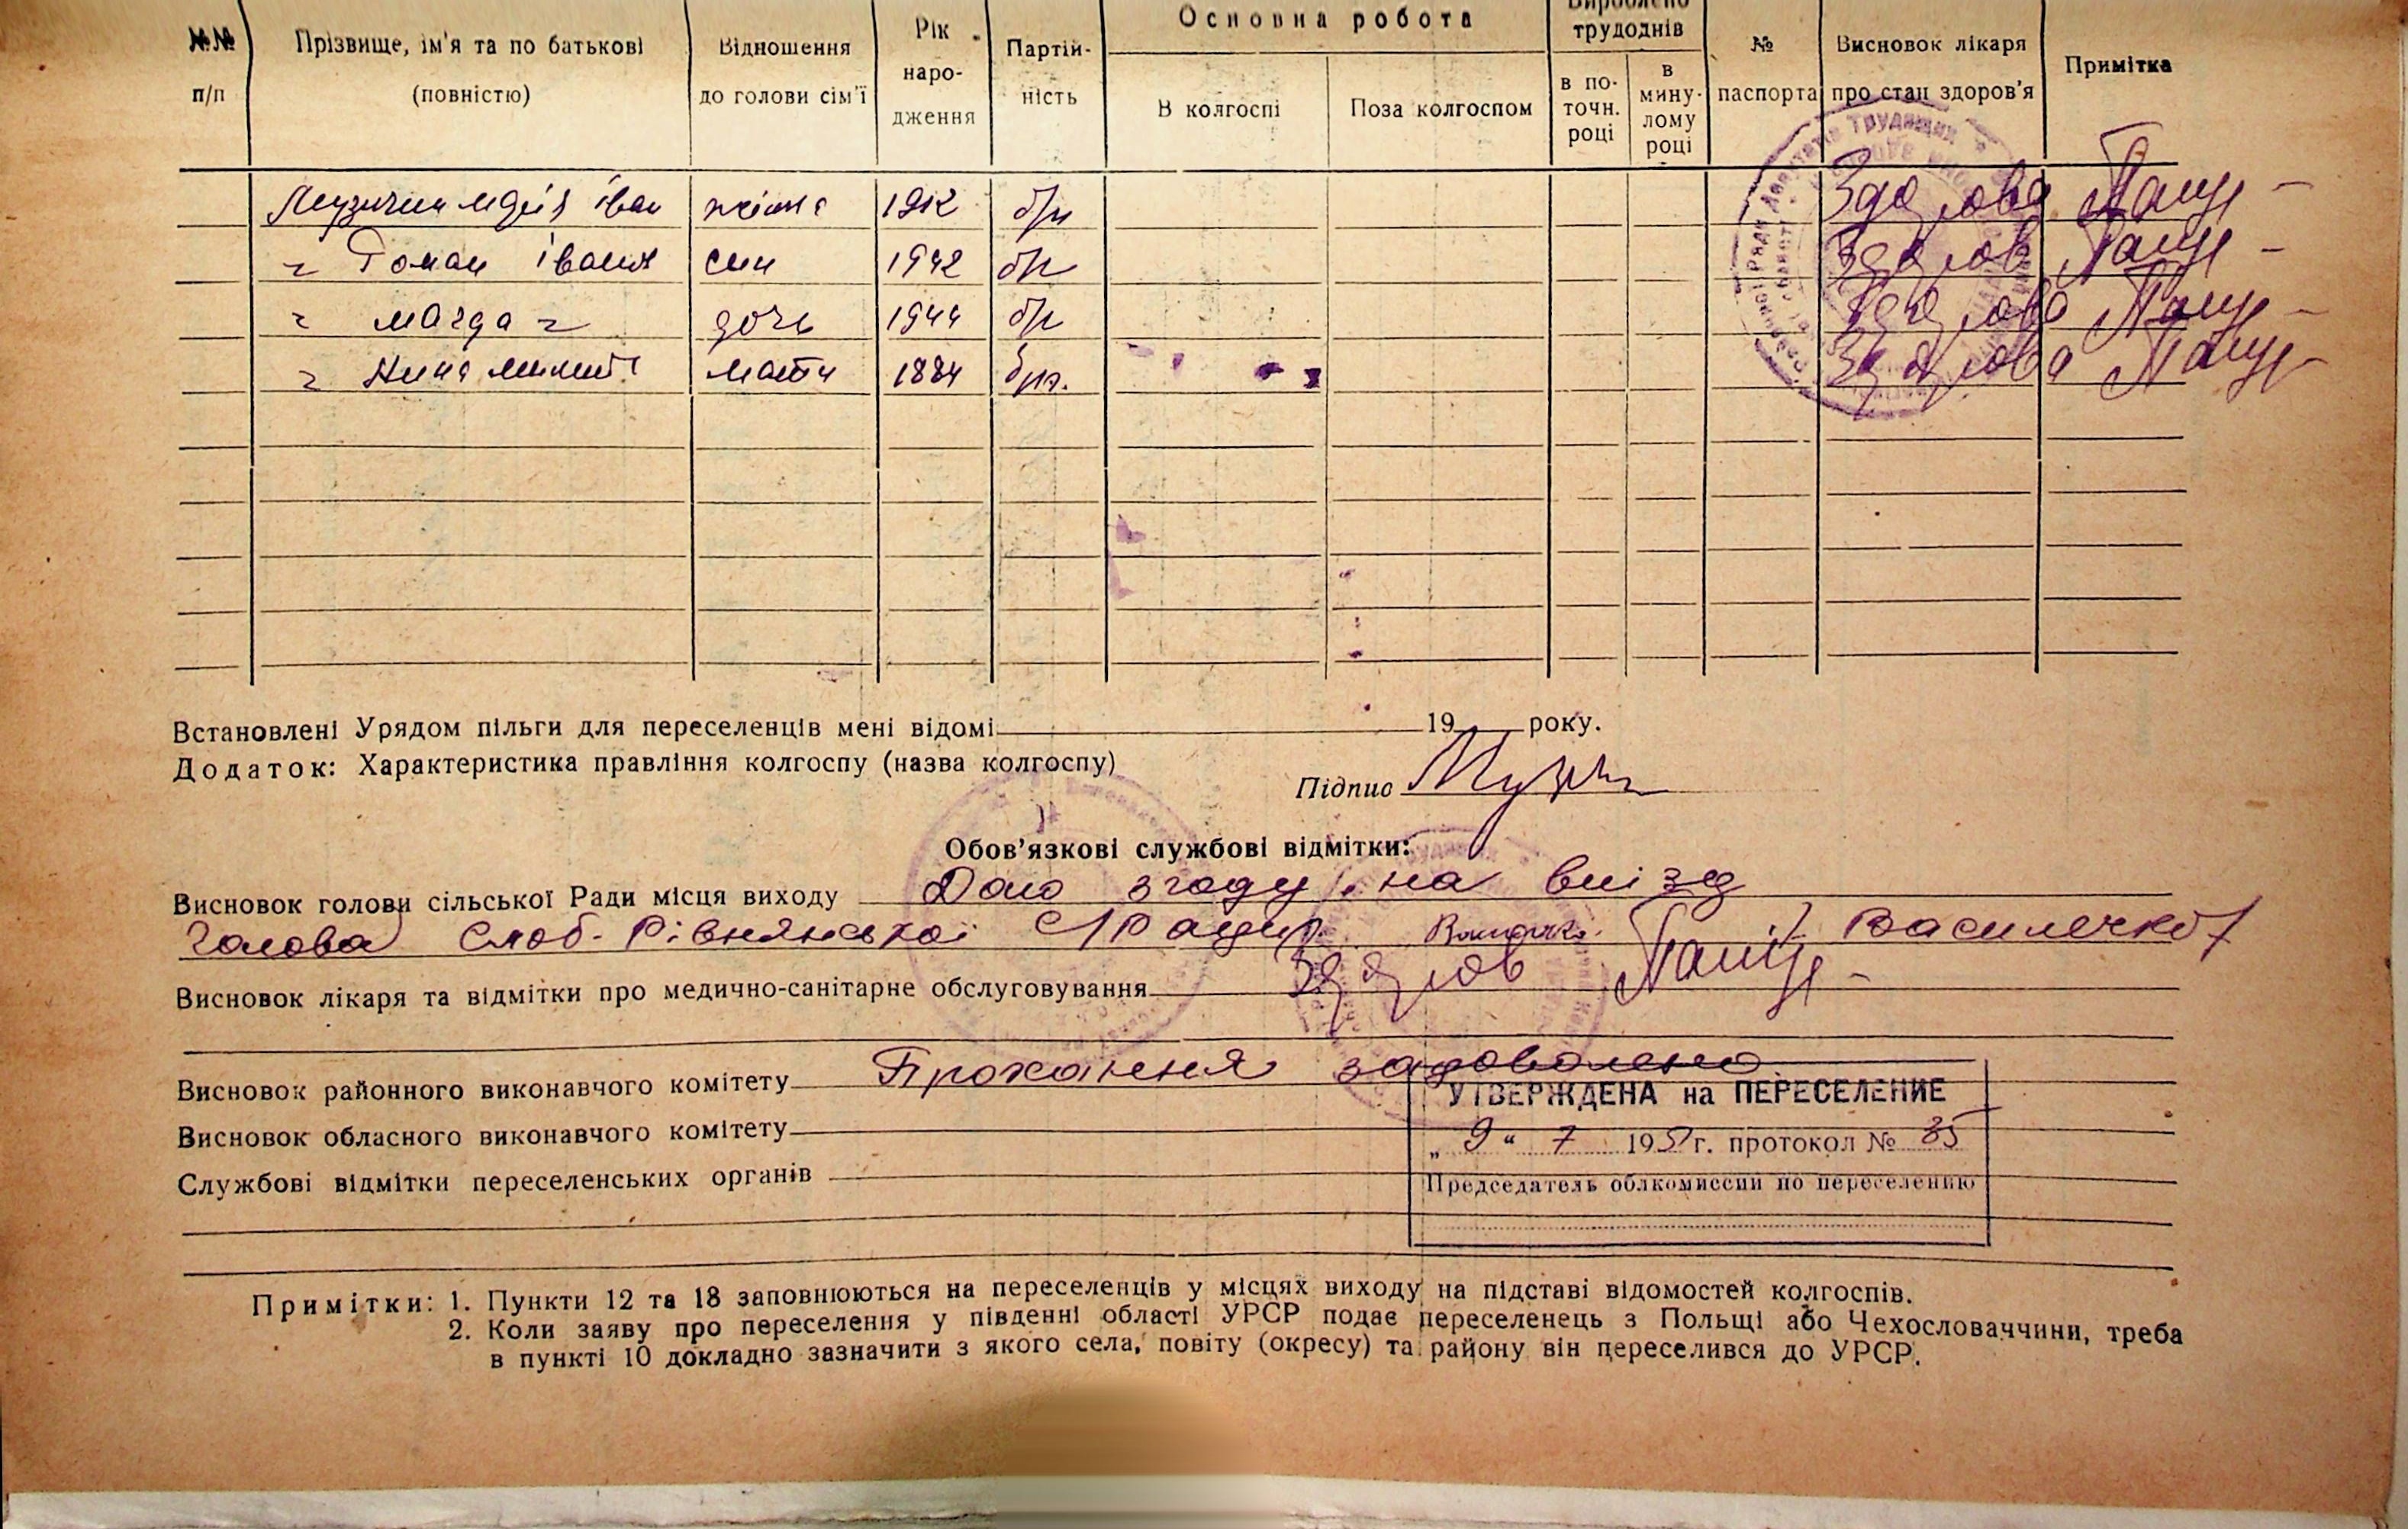 №№ п/п
Прізвище, ім'я та по батькові (повністю)
Відношення до голови сім'ї
Рік народження
Партій-
ність
Основна робота
В колгоспі
Поза колгоспом
Вироблено трудоднів
в по-
точн.
році
в
мину-
лому
році
№ паспорта
Висновок лікаря про стан здоров'я
Примітка
іван 1912 б/п Здорова
" Роман син 1942 б/п Здоров
" Магда " дочь 1944 б/п Здорова
" мати 1884 Здорова
Встановлені Урядом пільги для переселенців мені відомі 19 року.
Додаток: Характеристика правління колгоспу (назва колгоспу)
Підпис
Обов'язкові службові відмітки:
Висновок голови сільської Ради місця виходу Даю згоду на виїзд
Голова Слоб-Рівнянської с/Ради /Василечко/
Висновок лікаря та відмітки про медично-санітарне обслуговування Здоров
Висновок районного виконавчого комітету Прохання задоволено
Висновок обласного виконавчого комітету
Службові відмітки переселенських органів
УТВЕРЖДЕНА на ПЕРЕСЕЛЕНИЕ
„ 9 “ 7 1951 г. протокол № 35
Председатель облкомиссии по переселению
Примітки: 1. Пункти 12 та 18 заповнюються на переселенців у місцях виходу на підставі відомостей колгоспів.
2. Коли заяву про переселення у південні області УРСР подає переселенець з Польщі або Чехословаччини, треба
в пункті 10 докладно зазначити з якого села, повіту (окресу) та району він переселився до УРСР.